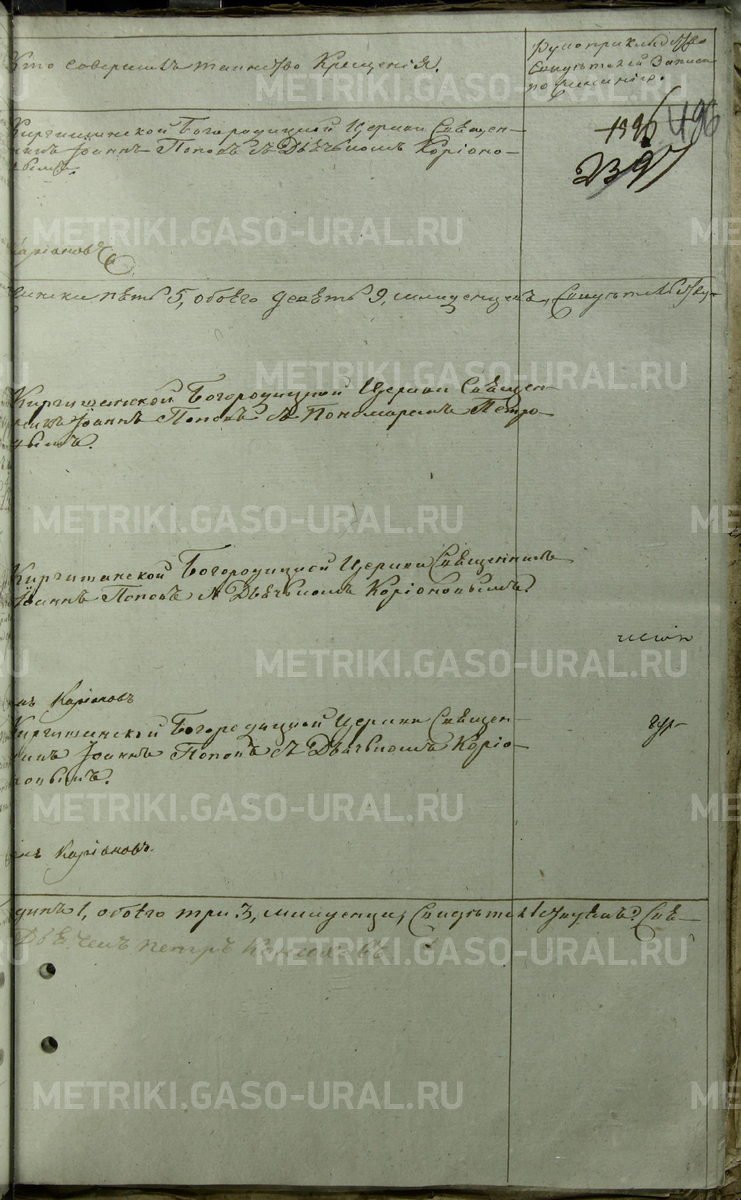 Кто совершилъ таинство Крещенія.
Рукоприкладство
Свидѣтелей Записи
по желанію.
Киргишанской Богородицкой Церкви Священ-
никъ Іоаннъ Поповъ съ Дьячькомъ Каріоно-
вымъ.
196
2397
Каріоновъ
женска пѣть 5, обоего девѣть 9, младенцевъ,
Киргишанской Богородицкой Церкви Священ-
никъ Іоаннъ Поповъ съ Пономаремъ Петро-
вымъ.
Киргишанской Богородицкой Церкви Священникъ
Іоаннъ Поповъ съ Дьячькомъ Каріоновымъ.
Каріоновъ
Киргишанской Богородицкой Церкви Священ-
никъ Іоаннъ Поповъ съ Дьячькомъ Каріо-
новымъ.
Каріоновъ
динъ 1, обоего три 3, младенца, Свѣ-
Дьячекъ Петръ Каріоновъ
METRIKI.GASO-URAL.RU